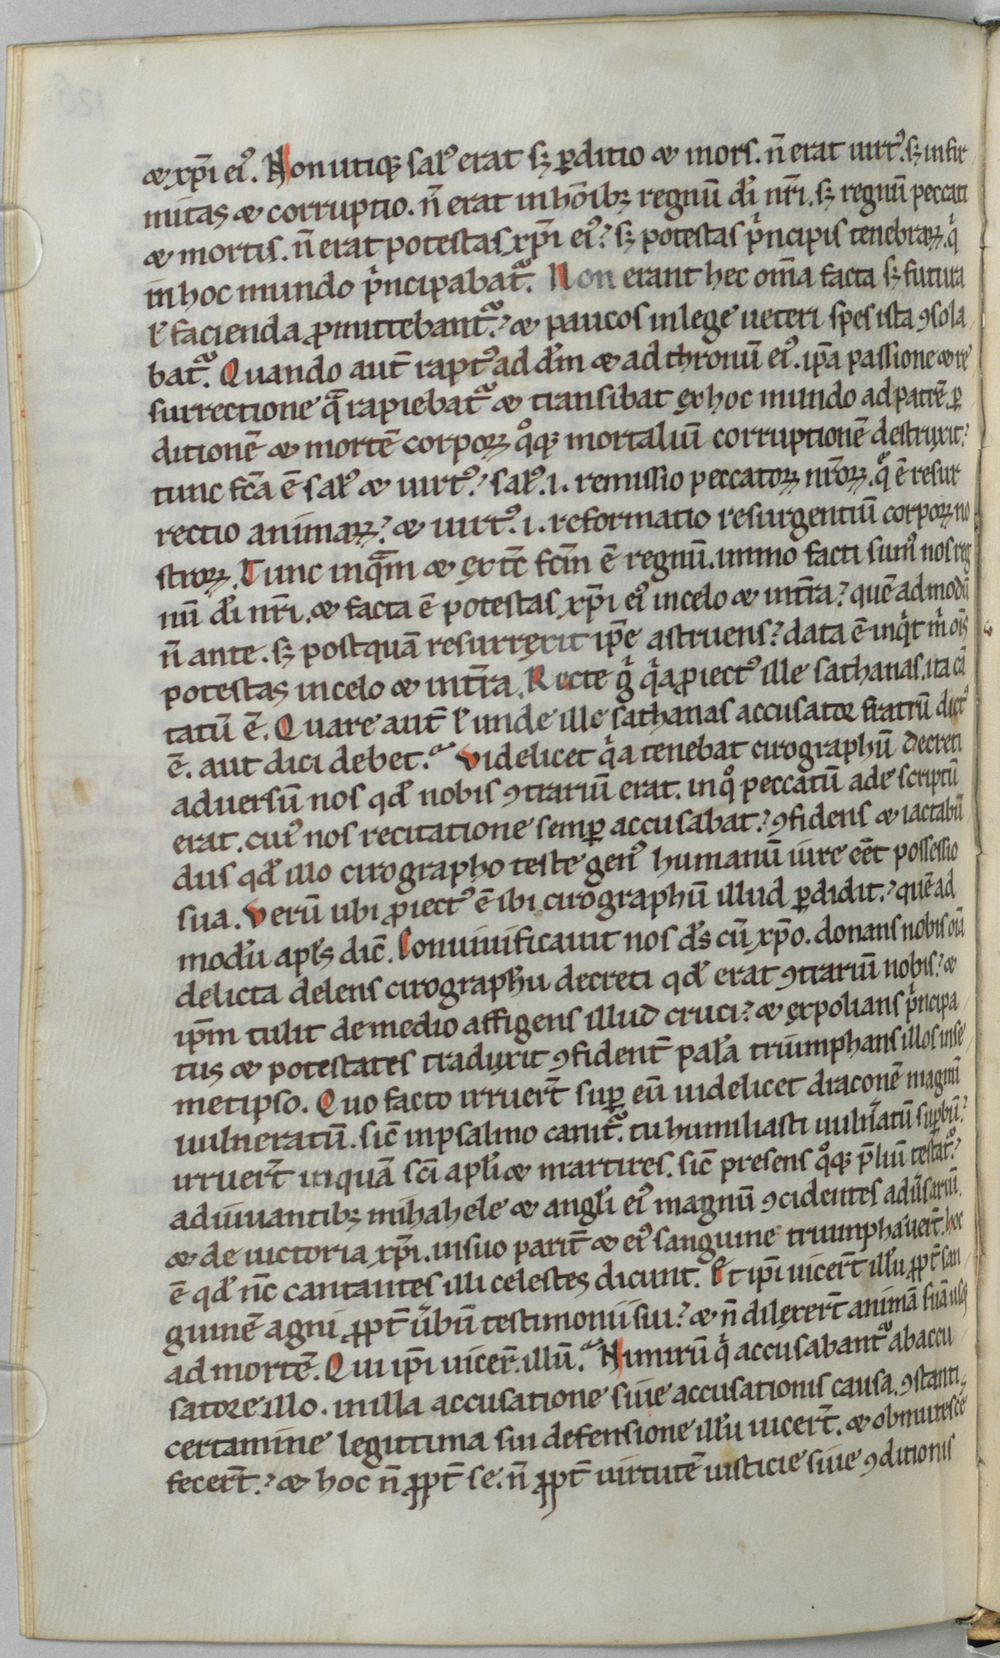 ⁊ xp̄i ei᷒. Non utiq; sal᷒ erat sꝫ ꝑditio ⁊ mors. n̄ erat uirt᷒. sꝫ infir
mitas ⁊ corruptio. n̄ erat in hōibꝫ regnū dī nr̄i. sꝫ regnū peccati
⁊ mortis. n̄ erat potestas xp̄i ei᷒? sꝫ potestas pͥncipis tenebraꝝ. qͥ
in hoc mundo pͥncipabat᷑. Non erant hec om̄a facta sꝫ futura
ł facienda ꝓmittebant᷑? ⁊ paucos in lege ueteri spes ista ꝯsola
bat᷑. Quando aut̄ rapt᷒ ad dm̄ ⁊ ad thronū ei᷒. ip̄a passione ⁊ re
surrectione qᷓ rapiebat᷑ ⁊ transibat ex hoc mundo ad patrē. ꝑ
ditionē ⁊ mortē corpoꝝ qͦq; mortaliū corruptionē destruxit?
tunc fcā ē sal᷒ ⁊ uirt᷒? sal᷒ .i. remissio peccatoꝝ nr̄oꝝ. qͥ ē resur
rectio animaꝝ? ⁊ uirt᷒ .i. reformatio resurgentiū corpoꝝ no
stroꝝ. Tunc inqᷓm ⁊ ex tc̄ fcm̄ ē regnū. immo facti sum᷒ nos reg
nū dī nr̄i. ⁊ facta ē potestas xp̄i ei᷒ in celo ⁊ in tr̄a? quē ad modū
n̄ ante. sꝫ postquā resurrexit ip̄e astruens? data ē inqͥt mͥ om̄s
potestas in celo ⁊ in tr̄a. Recte gͦ qͥa ꝓiect᷒ ille sathanas. ita cā
tatū ē. Quare aut̄ ł unde ille sathanas accusator fratrū dict᷒
ē. aut dici debet? Videlicet qͥa tenebat cirographū decreti
aduersū nos qđ nobis ꝯtrariū erat. in qͦ peccatū ade scriptū
erat. cui᷒ nos recitatione semꝑ accusabat? ꝯfidens ⁊ iactabū
dus qđ illo cirographo teste gen᷒ humanū iure eēt possessio
sua. Verū ubi ꝓiect᷒ ē ibi cirographū illud ꝑdidit? quē ad
modū apl̄s dic̄. Conuiuificauit nos ds̄ cū xp̄o. donans nobis oīa
delicta delens cirographū decreti qđ erat ꝯtrariū nobis? ⁊
ip̄m tulit de medio affigens illud cruci? ⁊ expolians pͥncipa
tus ⁊ potestates traduxit ꝯfident̄ pala triumphans illos in se
metipso. Quo facto irruert̄ suꝑ eū uidelicet draconē magnū
uulneratū. sic̄ in psalmo canit᷑. tu humiliasti uuln̄atū suꝑbū?
irruert̄ inquā sc̄i apl̄i ⁊ martires. sic̄ presens qͦq; p̄liū testat᷑?
adiuuantibꝫ mihahele ⁊ angl̄i ei᷒ magnū ꝯcidentes adu̾sariū.
⁊ de uictoria xp̄i. in suo parit̄ ⁊ ei᷒ sanguine triumphauert̄. hoc
ē qđ nc̄ cantantes illi celestes dicunt. Et ip̄i uicert̄ illū ꝓpt̄ san
guinē agni ꝓpt̄ u̾bū testimonii sui? ⁊ n̄ dilexert̄ animā suā usq;
ad mortē. Qui ip̄i uicer̄ illū? Nimirū qͥ accusabant᷑ ab accu
satore illo. in illa accusatione siue accusationis causa. ꝯstanti
certamine legittima sui defensione illū uicert̄. ⁊ obmutescē
fecert̄? ⁊ hoc n̄ ꝓpt̄ se. n̄ ꝓpt̄ uirtutē iusticie siue ꝯditionis